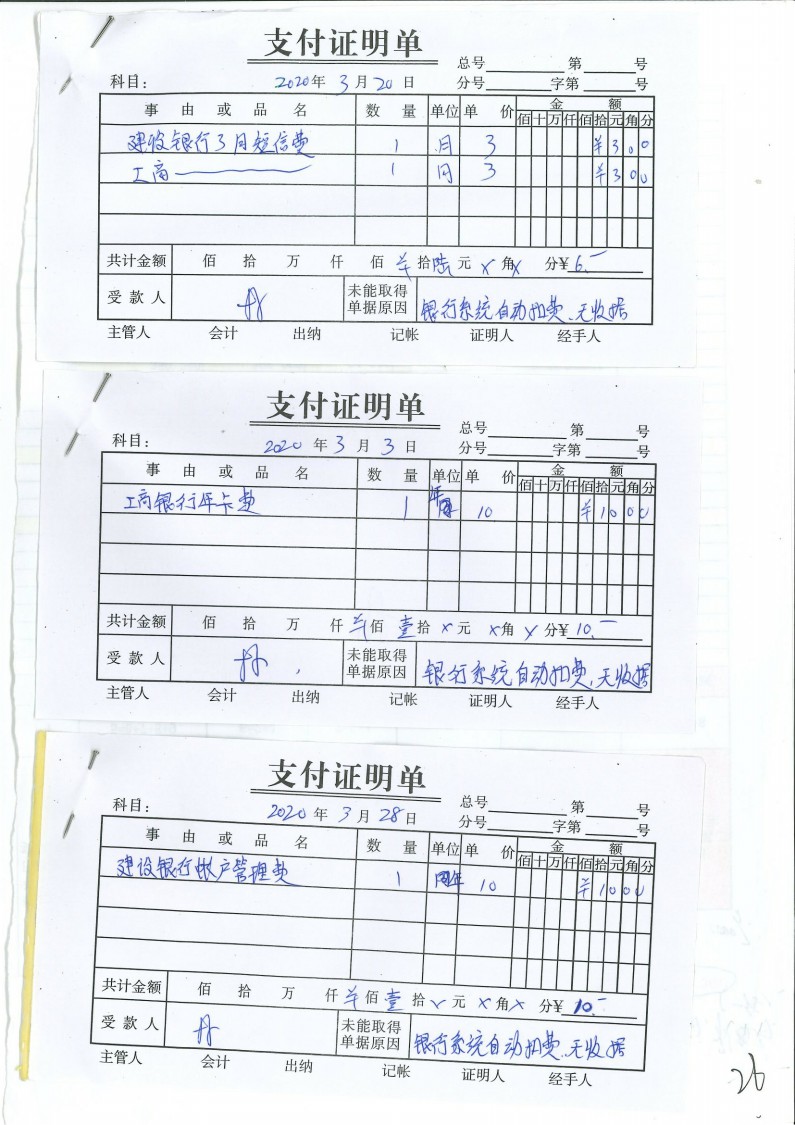 支付证明单
总号 第 号
科目: 2020年 3月20日 分号 字第 号
事 由 或 品 名 数 量 单位 单 价 金 额
佰十万仟佰拾元角分
建设银行3月短信费 1 月 3 ¥300
工商 1 月 3 ¥300
共计金额 佰 拾 万 仟 佰 ¥拾陆元×角×分¥6.—
受 款 人 未能取得单据原因 银行系统自动扣费、无收据
主管人 会计 出纳 记帐 证明人 经手人
支付证明单
总号 第 号
科目: 2020年3月3日 分号 字第 号
事 由 或 品 名 数 量 单位 单 价 金 额
佰十万仟佰拾元角分
工商银行年卡费 1 年 10 ¥1000
共计金额 佰 拾 万 仟¥佰壹拾×元×角×分¥10.—
受 款 人 未能取得单据原因 银行系统自动扣费、无收据
主管人 会计 出纳 记帐 证明人 经手人
支付证明单
总号 第 号
科目: 2020年3月28日 分号 字第 号
事 由 或 品 名 数 量 单位 单 价 金 额
佰十万仟佰拾元角分
建设银行帐户管理费 1 年 10 ¥1000
共计金额 佰 拾 万 仟¥佰壹拾×元×角×分¥10.—
受 款 人 未能取得单据原因 银行系统自动扣费、无收据
主管人 会计 出纳 记帐 证明人 经手人
26